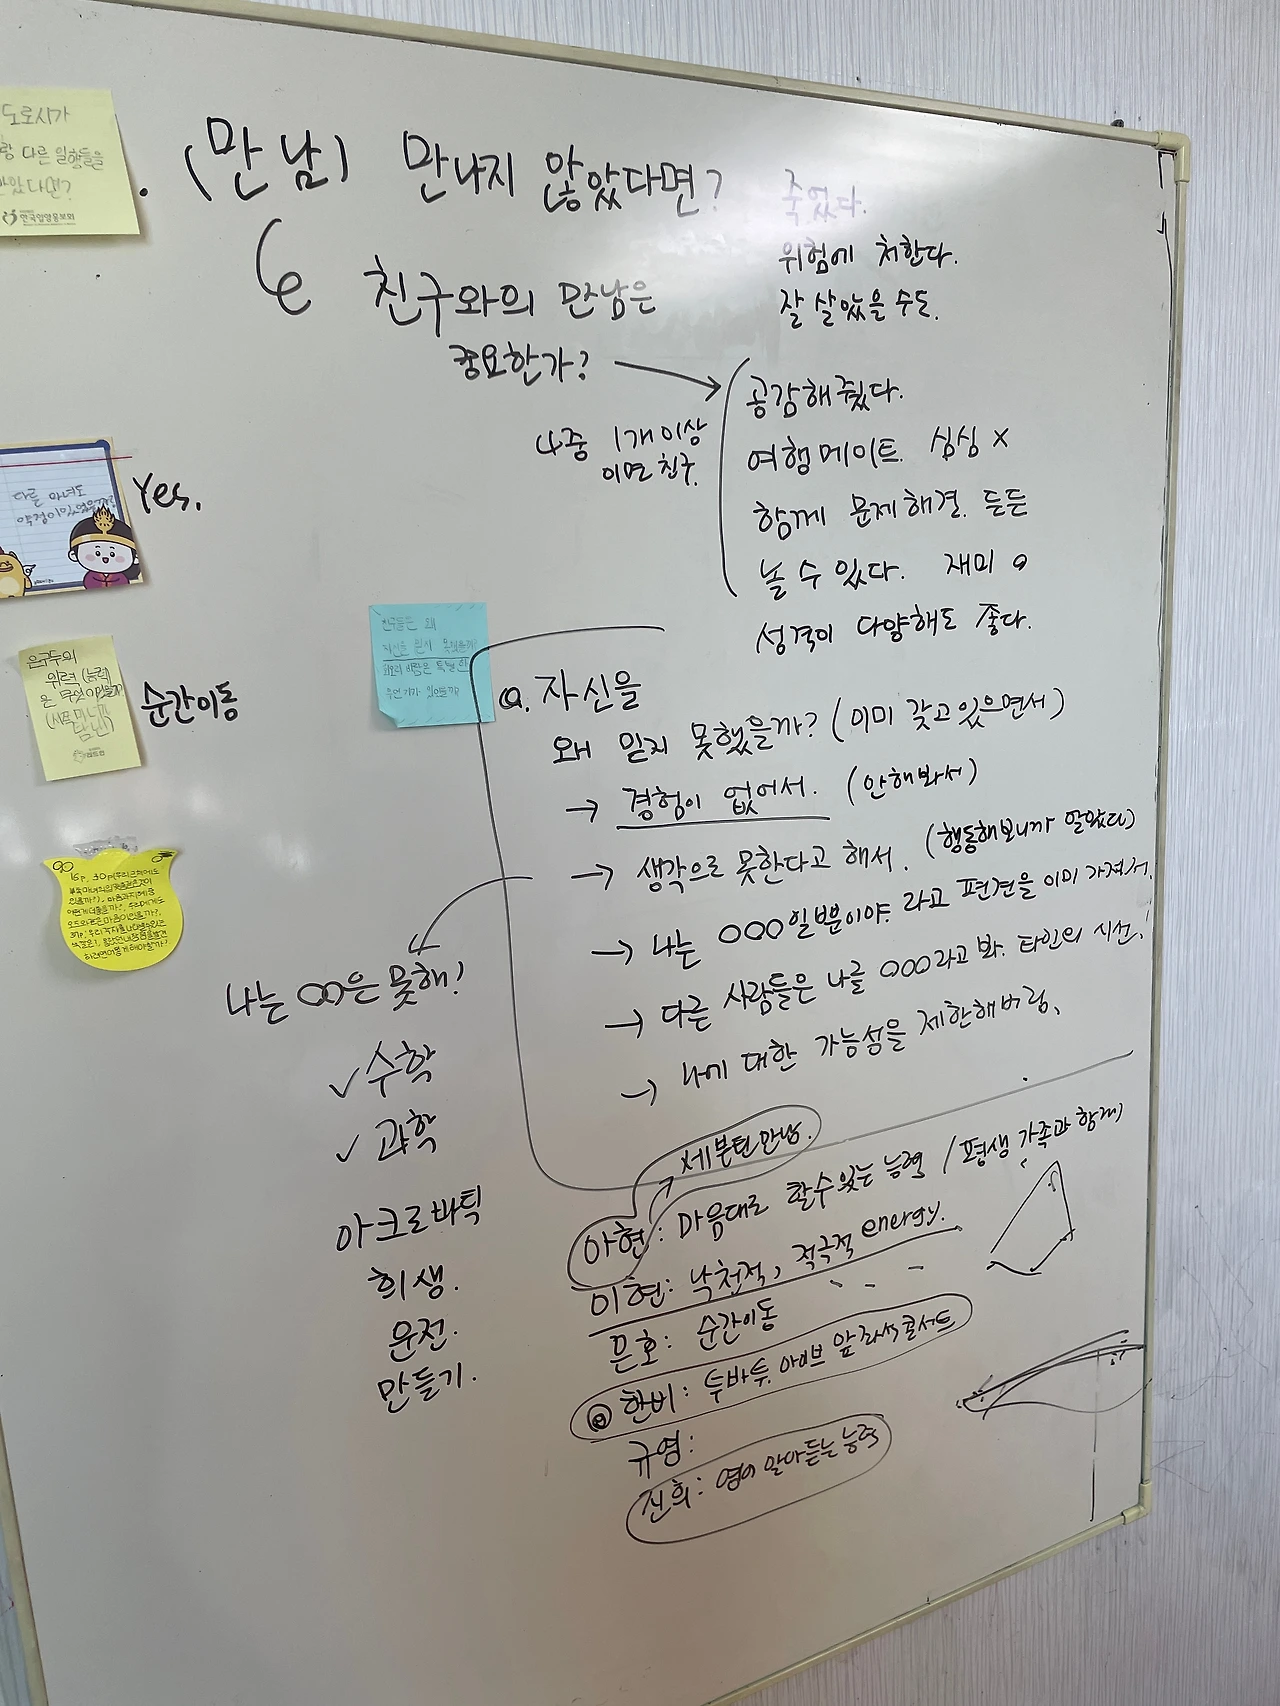 도로시가
랑 다른 일행들을
만났다면?
한국임업홍보회
(만남) 만나지 않았다면? 죽었다.
위험에 처한다.
잘 살았을 수도.
친구와의 만남은
중요한가?
4중 1개 이상
이면 친구.
공감해줬다.
여행메이트. 심심 X
함께 문제해결. 든든
놀 수 있다. 재미 O
성격이 다양해도 좋다.
다른 마녀도
약점이 있었을까?
Yes.
은구두의
위력(능력)
은 무엇이었을까?
순간이동
친구들은 왜
자신을 믿지 못했을까?
Q. 자신을
왜 믿지 못했을까? (이미 갖고 있으면서)
→ 경험이 없어서. (안해봐서)
→ 생각으로 못한다고 해서. (행동해보니까 알았다)
→ 나는 OOO일 뿐이야. 라고 편견을 이미 가져서.
→ 다른 사람들은 나를 OOO라고 봐. 타인의 시선!
→ 나에 대한 가능성을 제한해버림.
나는 OO은 못해!
✓ 수학
✓ 과학
아크로바틱
희생.
운전.
만들기.
세븐틴 만남.
아현: 마음대로 할 수 있는 능력 / 평생 가족과 함께
이현: 낙천적, 적극적 energy.
은호: 순간이동
한비: 투바투, 아이브 앞좌석 콘서트
규영:
신희: 영어 알아듣는 능력